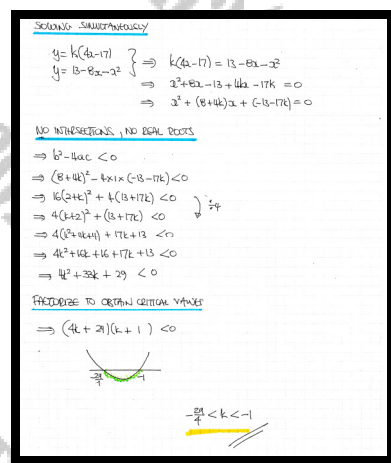 SOLVING SIMULTANEOUSLY
y = k(4x-17)
y = 13-8x-x²
} ⇒ k(4x-17) = 13-8x-x²
⇒ x²+8x-13+4kx-17k = 0
⇒ x² + (8+4k)x + (-13-17k) = 0
NO INTERSECTIONS, NO REAL ROOTS
⇒ b²-4ac < 0
⇒ (8+4k)² - 4×1×(-13-17k) < 0
⇒ 16(2+k)² + 4(13+17k) < 0
÷4
⇒ 4(k+2)² + (13+17k) < 0
⇒ 4(k²+4k+4) + 17k+13 < 0
⇒ 4k²+16k+16+17k+13 < 0
⇒ 4k²+33k+29 < 0
FACTORIZE TO OBTAIN CRITICAL VALUES
⇒ (4k+29)(k+1) < 0
-29/4 -1
-29/4 < k < -1